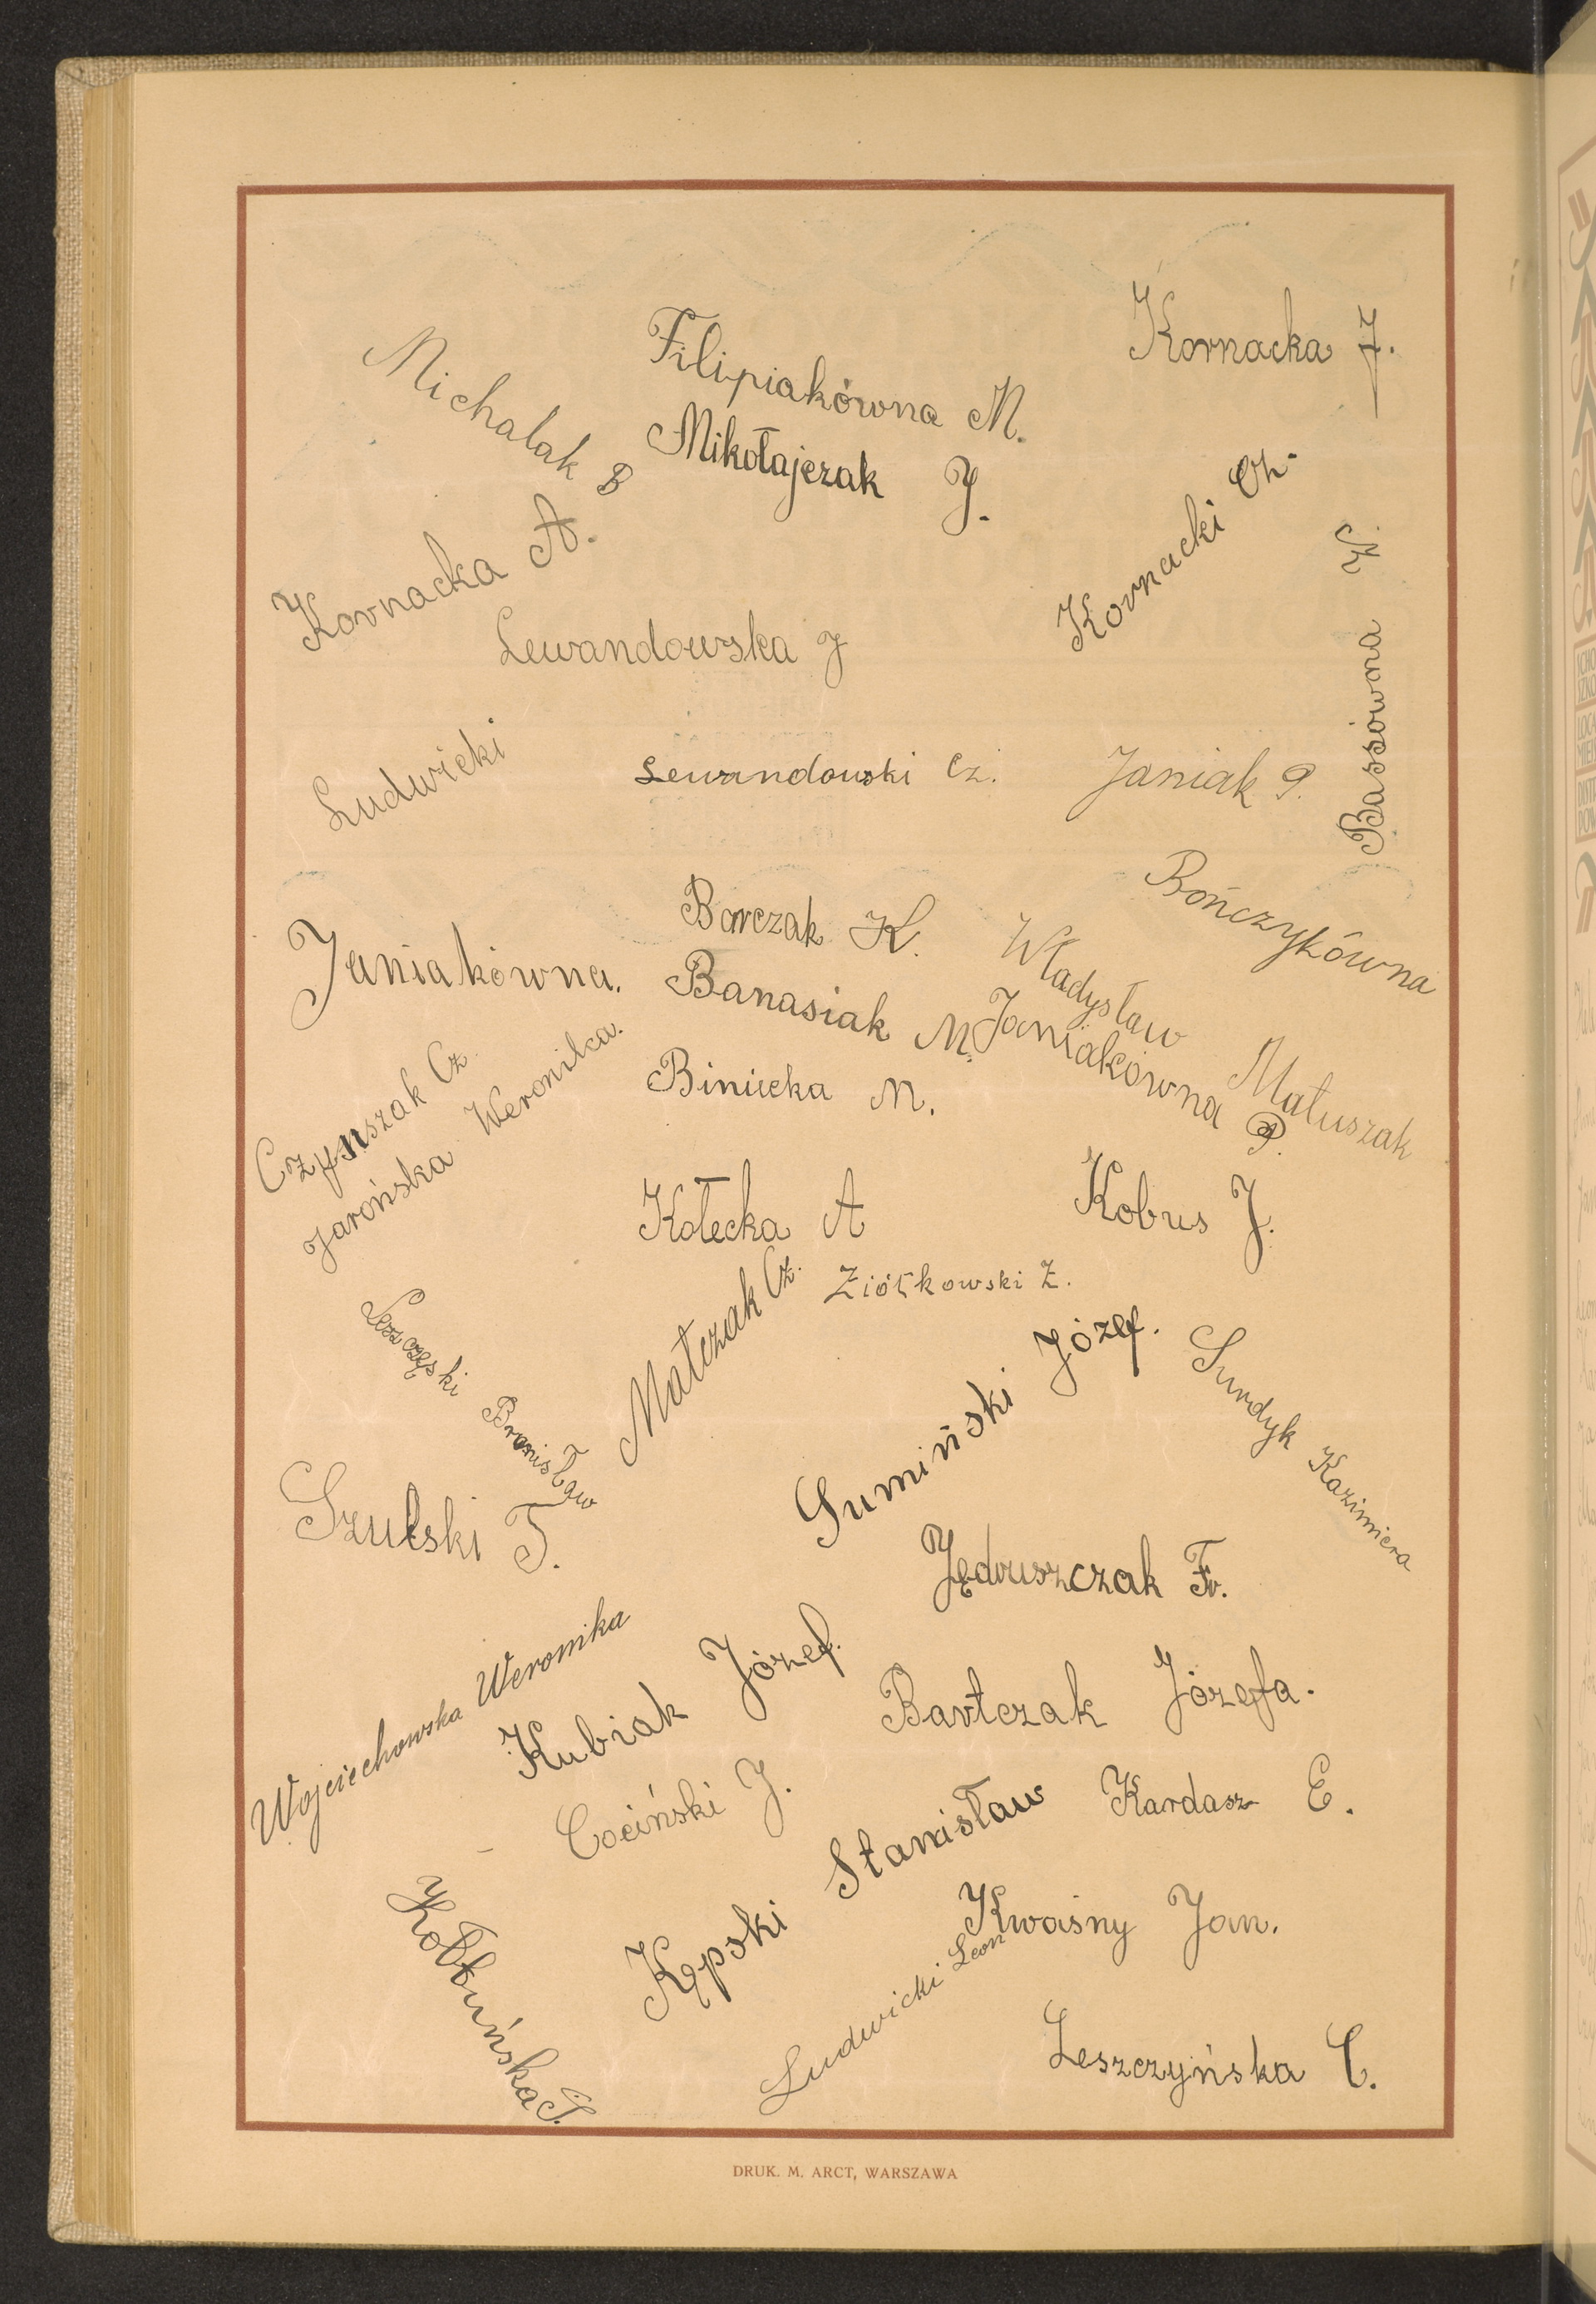 Kornacka J.
Filipiakówna M.
Michalak B
Mikołajczak J.
Kornacki Cz.
Kornacka A.
Lewandowska J
Bassówna
Ludwicki
Lewandowski Cz.
Janiak P.
Bończykówna
Borczak K.
Janiakówna.
Banasiak M.
Władysław Matuszak
Janiakówna P.
Binicka M.
Czynszak Cz.
Jarońska Weronika.
Kołecka A
Kobus J.
Matczak Cz.
Ziółkowski Z.
Bronisław
Sumiński Józef.
Surdyk Kazimiera
Szulski T.
Jędruszczak Fr.
Wojciechowska Weronika
Kubiak Józef.
Bartczak Józefa.
Cociński J.
Kardasz E.
Kępski Stanisław
Kwaśny Jan.
Ludwicki Leon
Leszczyńska C.
DRUK. M. ARCT, WARSZAWA